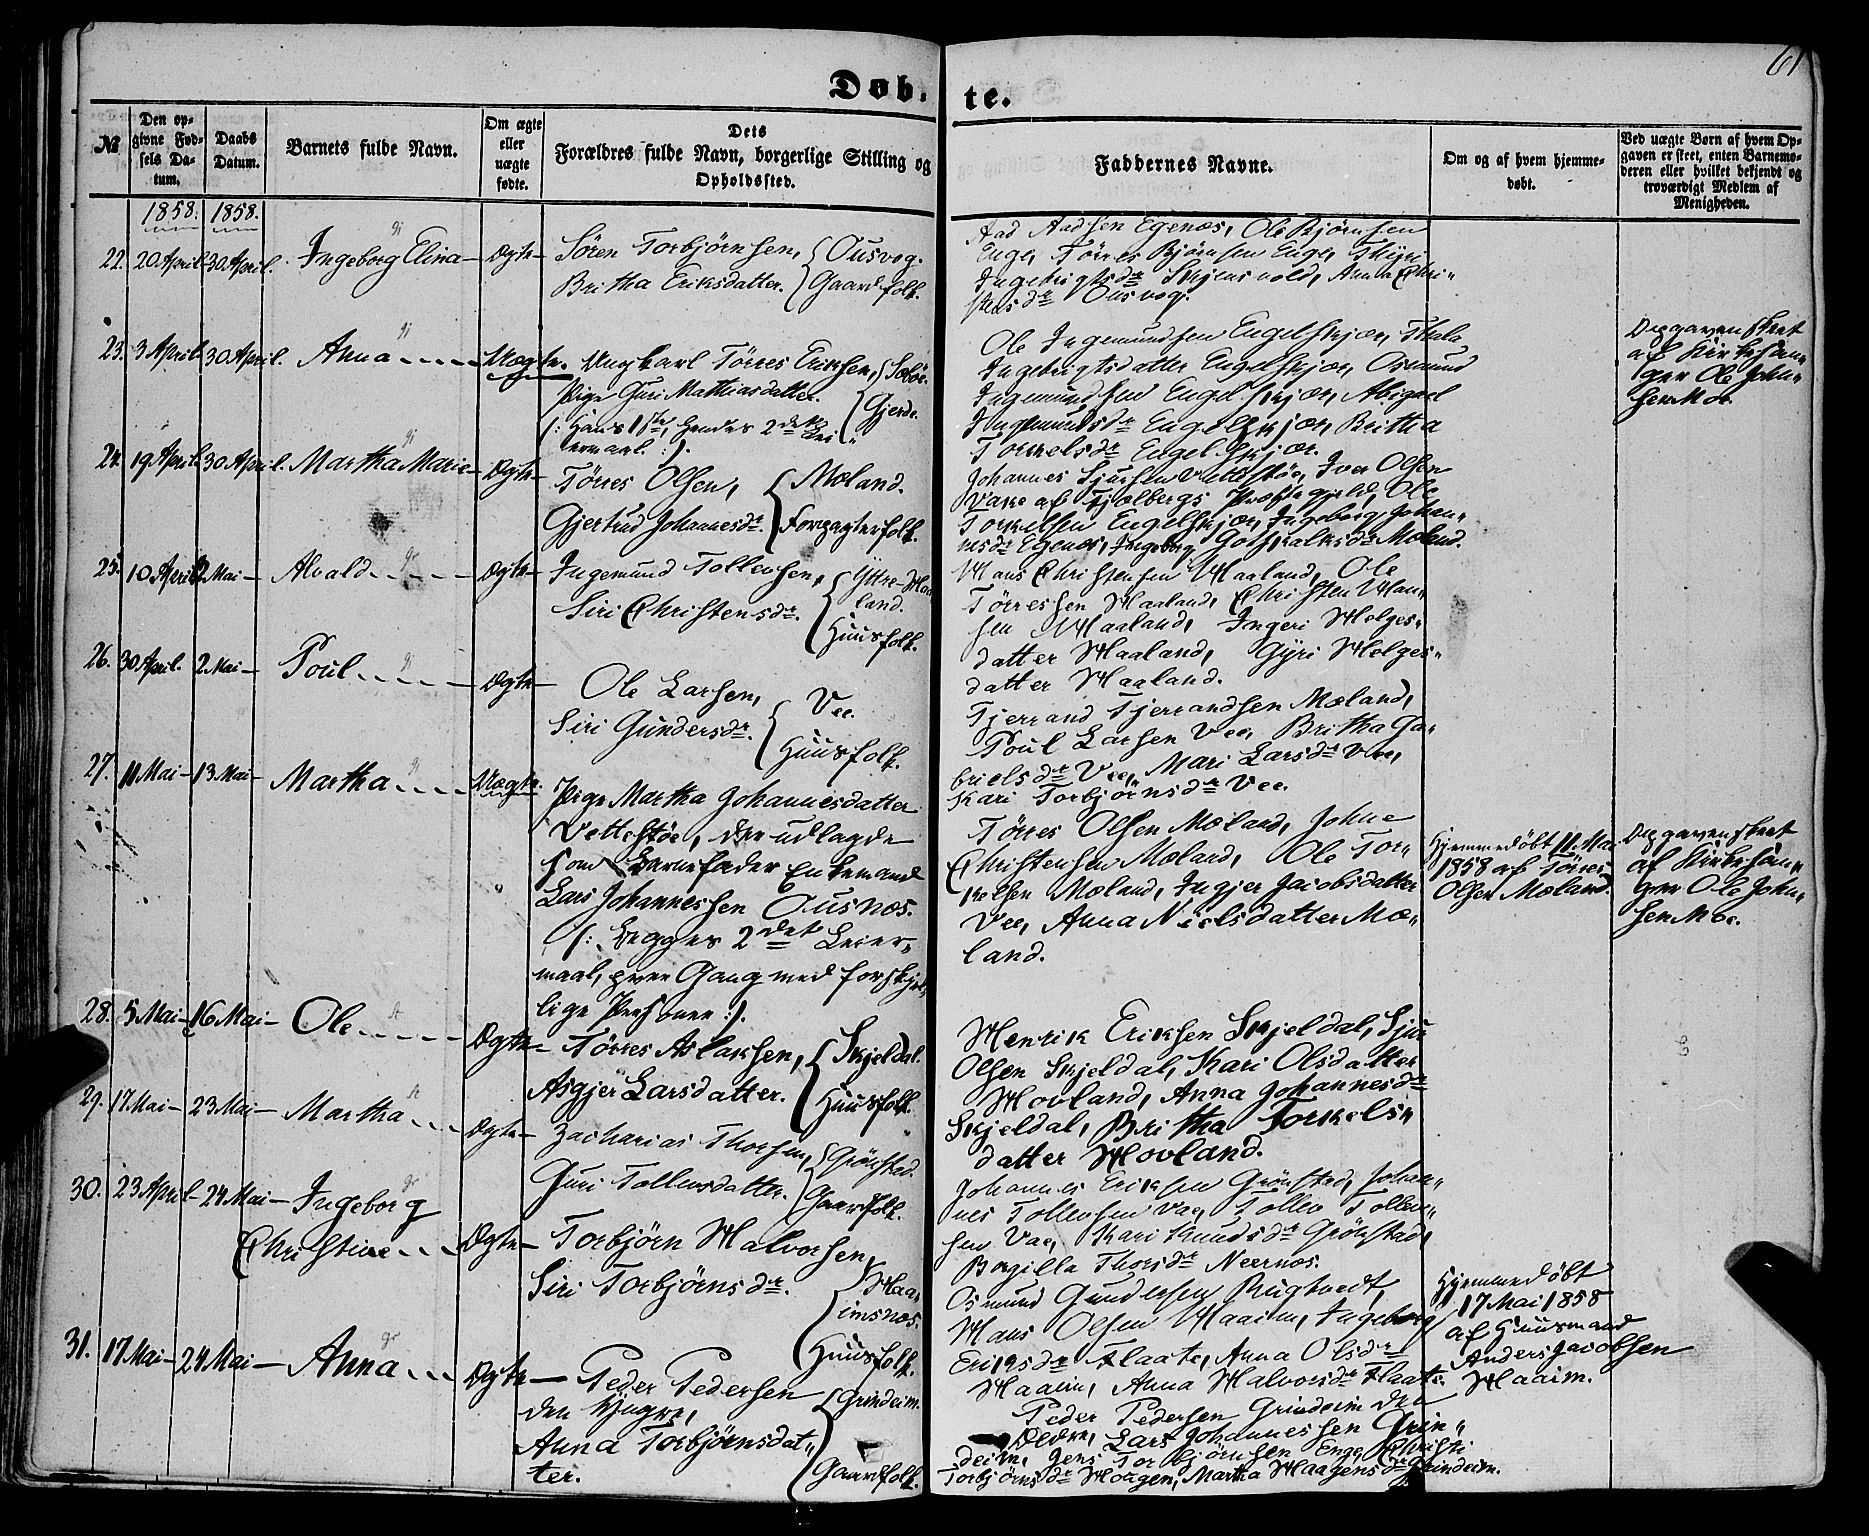 61
Døb. te.
№
Den op-
givne Fød-
sels Da-
tum.
Daabs
Datum.
Barnets fulde Navn.
Om ægte
eller
uægte
fødte.
Dets
Forældres fulde Navn, borgerlige Stilling og
Opholdssted.
Faddernes Navne.
Om og af hvem hjemme-
døbt.
Ved uægte Børn af hvem Op-
gaven er skeet, enten Barnemo-
deren eller hvilket bekjendt og
troværdigt Medlem af
Menigheden.
1858. 1858.
22. 20 April 30 April. Ingeborg Elina Ægte
Sören Torbjörnsen, Ousvog.
Britha Eriksdatter. Gaardfolk.
Aad Aadsen Egenæs, Ole Björnsen
Enge, Törres Björnsen Enge,
Ingebrigtsdr Skjensvold, Anna Chri-
stensdr Ousvog.
23. 3 April 30 April. Anna Uægte.
Ungkarl Törres Eriksen, Sæböe
Pige Guri Mathiasdatter. Gjerde
(: Hans 1ste, hendes 2det Lei-
ermaal :).
Ole Ingemundsen Engelskjær,
Ingebrigtsdatter Engelskjær, Osmund
Ingemundsen Engelskjær, Abigael
Ingemundsdr Engelskjær, Britha
Torkelsdr Engelskjær.
Opgaven skeet
af Kirkesan-
ger Ole John-
sen Moe.
24. 19 April 30 April. Martha Marie Ægte
Törres Olsen, Mæland.
Gjertrud Johannesdr. Forpagterfolk.
Johannes Sjursen Vettestöe, Iver Olsen
Vake af Fjælbergs Præstegjeld, Ole
Torkelsen Engelskjær, Ingeborg Johan-
nesdr Egenæs, Ingeborg Gotskalksdr Mæland.
25. 10 April 2 Mai Alvald Ægte
Ingemund Tollevsen, Yttre-Haa-
land.
Siri Christensdr. Huusfolk.
Hans Christensen Haaland, Ole
Törresen Haaland, Christen Han-
sen Haaland, Ingeri Helges-
datter Haaland, Gyri Helges-
datter Haaland.
26. 30 April. 2 Mai Poul Ægte
Ole Larsen, Vee.
Siri Gundersdr. Huusfolk.
Tjerrand Tjerrandsen Mæland,
Poul Larsen Vee, Britha Ga-
brielsdr Vee, Mari Larsdr Vee,
Kari Torbjörnsdr Vee.
27. 11 Mai 13 Mai Martha Uægte.
Pige Martha Johannesdatter
Vettestöe, der udlagde
som Barnefader Enkemand
Lars Johannessen Ousnæs.
(: begges 2det Leier-
maal, hver Gang med forskjel-
lige Personer :).
Törres Olsen Mæland, Johne
Christensen Mæland, Ole Tor-
kelsen Mæland, Ingjer Jacobsdatter
Vee, Anna Nielsdatter Mæ-
land.
Hjemmedöbt 11 Mai
1858 af Törres
Olsen Mæland.
Opgaven skeet
af Kirkesan-
ger Ole John-
sen Moe.
28. 5 Mai 16 Mai Ole Ægte
Törres Aslaksen, Skjeldal.
Asgjer Larsdatter. Huusfolk.
Henrik Eriksen Skjeldal, Sjur
Olsen Skjeldal, Kari Olsdatter
Hovland, Anna Johannesdr
Skjeldal, Britha Torkels-
datter Hovland.
29. 17 Mai 23 Mai Martha Ægte
Zacharias Thorsen, Grönsted.
Guri Tollevsdatter. Gaardfolk.
Johannes Eriksen Grönstad, Johan-
nes Tollevsen Vae, Tollev Tollev-
sen Vae, Kari Knudsdr Grönstad,
Borgilla Thorsdr Neernæs.
30. 23 April 24 Mai Ingeborg
Christine Ægte
Torbjörn Halvorsen,
Siri Torbjörnsdr. Haa-
imsnæs.
Huusfolk.
Osmund Gundersen Rugtvedt,
Hans Olsen Haaim, Ingeborg
Eriksdr Flaate, Anna Olsdr
Haaim, Anna Halvorsdr Flaate.
Hjemmedöbt
17 Mai 1858
af Huusmand
Anders Jacobsen
Haaim.
31. 17 Mai 24 Mai Anna Ægte
Peder Pedersen Grindeim.
den Yngre,
Anna Torbjörnsdat-
ter. Gaardfolk.
Peder Pedersen Grindeim den
Ældre, Lars Johannessen Grin-
deim, Jens Torbjörnsen Enge, Christi
Torbjörnsdr Horgen, Martha Haagensdr Grindeim.